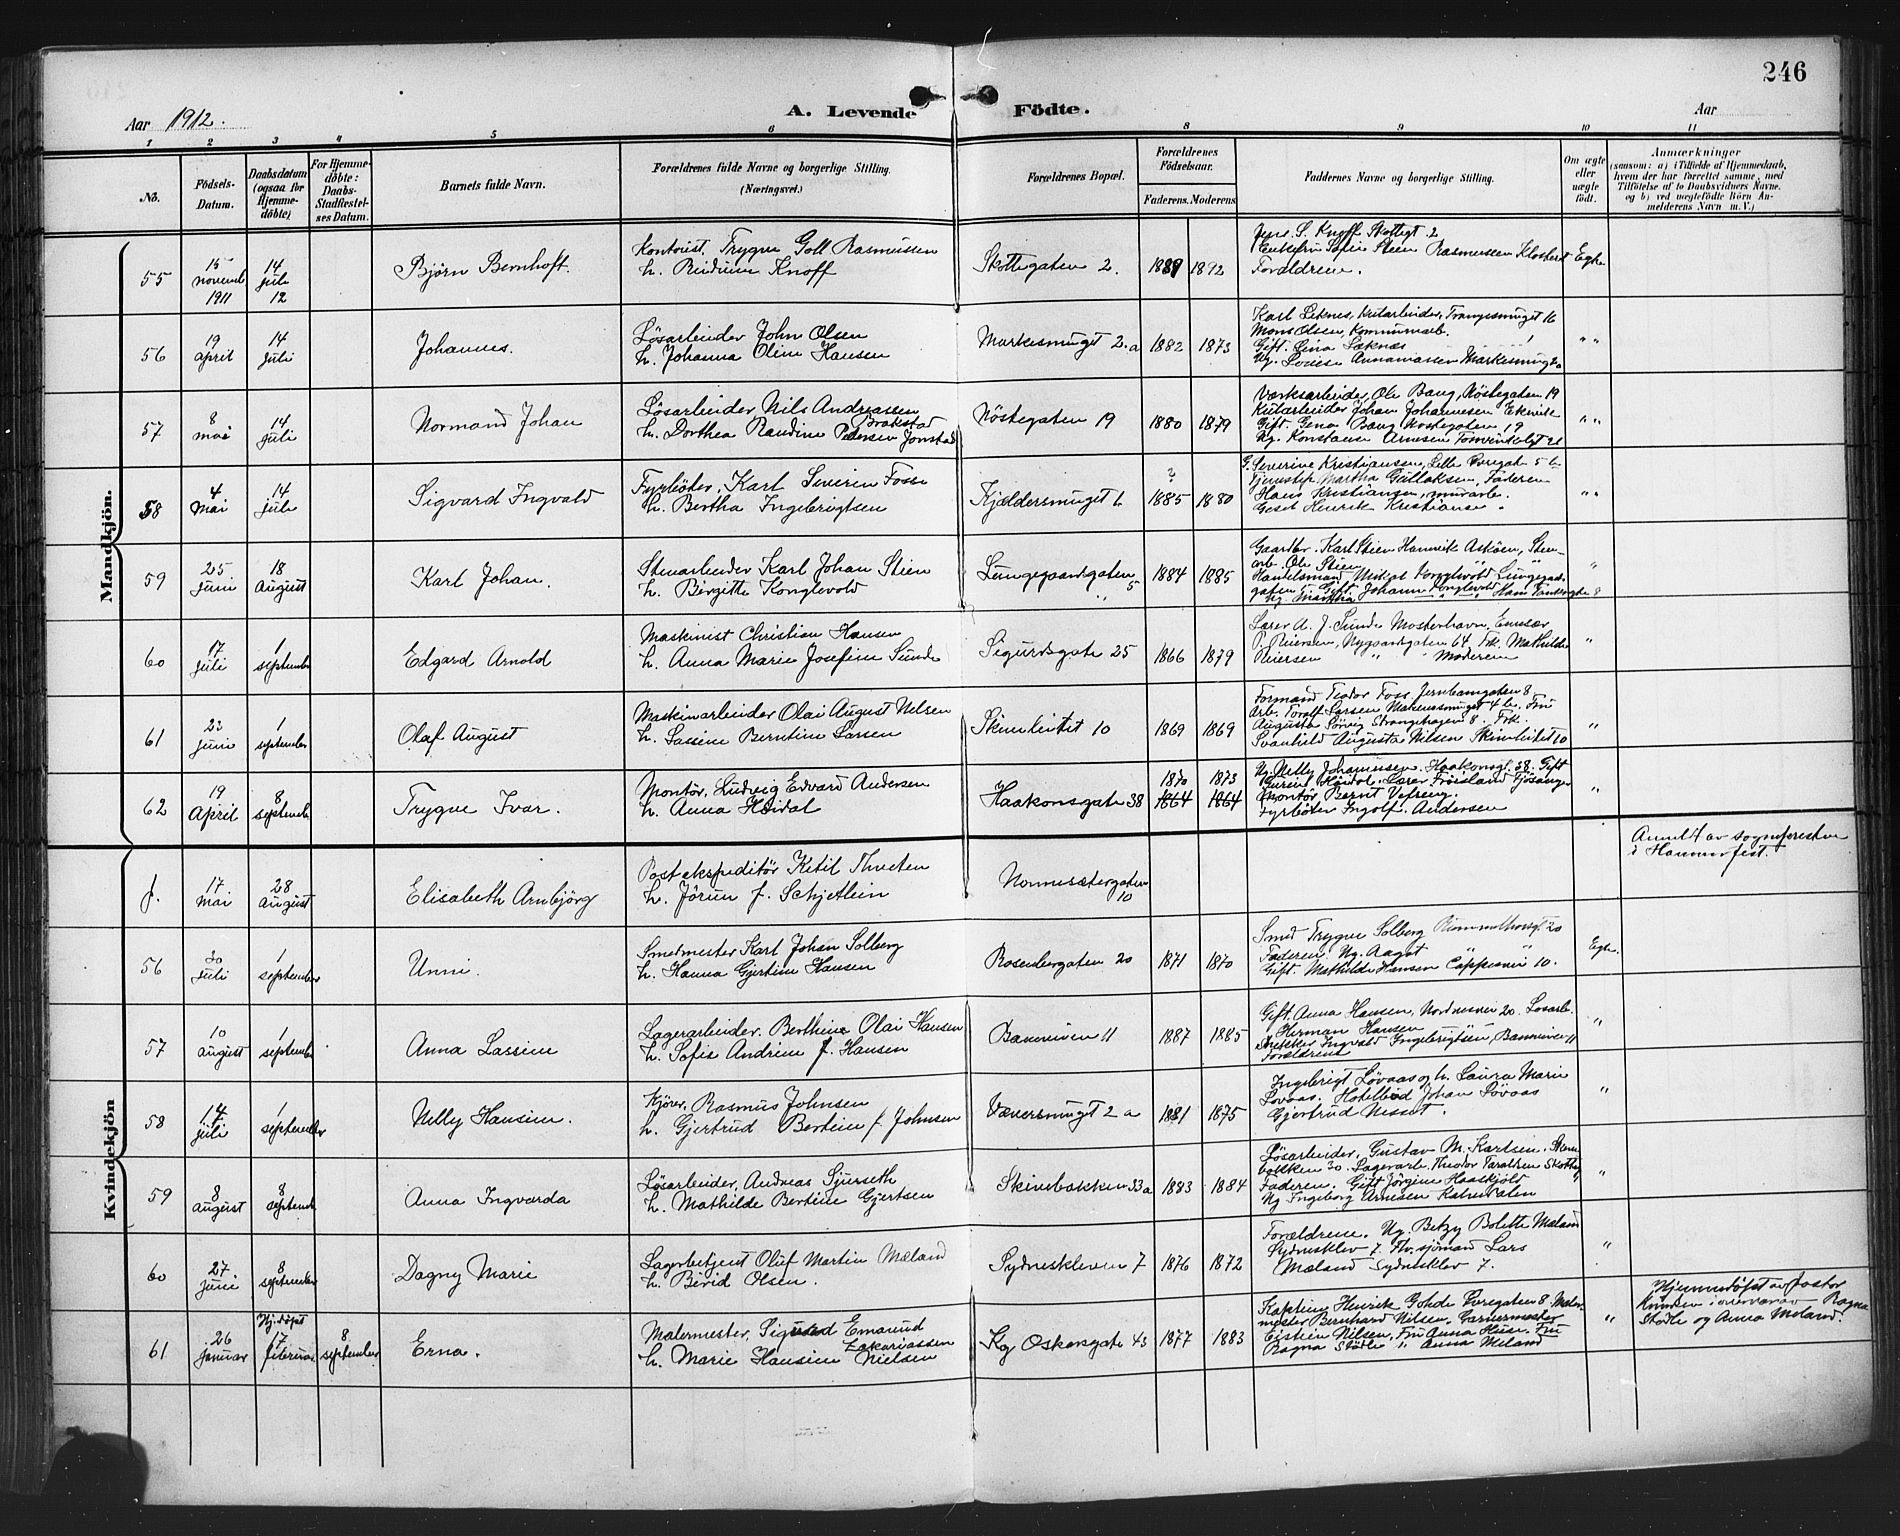 246
Aar 1912.
A. Levende Födte.
Aar
1 2 3 4 5 6 8 9 10 11
No.
Födsels-
Datum.
Daabsdatum
(ogsaa for
Hjemme-
döbte)
For Hjemme-
döbte:
Daabs-
Stadfæstel-
ses Datum.
Barnets fulde Navn.
Forældrenes fulde Navne og borgerlige Stilling.
(Næringsvei.)
Forældrenes Bopæl.
Forældrenes
Födselsaar.
Faderens. Moderens.
Faddernes Navne og borgerlige Stilling.
Om ægte
eller
uægte
födt.
Anmærkninger
(saasom: a) i Tilfælde af Hjemmedaab,
hvem der har forrettet samme, med
Tilföielse af to Daabsvidners Navne,
og b) ved uægtefödte Börn An-
melderens Navn m. V.)
Mandkjön.
55
15 novemb 1911
14 juli 12
Björn Bernhoft.
Kontorist. Trygve Goll Rasmussen
h. Knoff
Skottegaten 2.
1889 1892
S. Knoff Skottegt 2
Sofie Steen Rasmussen Klosteret
Forældrene.
Egte
56
19 april
14 juli
Johannes.
Løsarbeider John Olsen
h. Johanna Oline Hansen
Markesmuget 2.a
1882 1873
Karl Leknes, Trangesmuget 16
Mons Olsen, Kommunearb.
Gift. Gina Leknæs
Ug. Lovise Annaniassen Markesmug 2a
" "
57
8 mai
14 juli
Normand Johan
Løsarbeider, Nils Andreassen
Brakestad
h. Dorthea Randine Pedersen Jonstad
Nöstegaten 19
1880 1879
Værksarbeider, Ole Bang, Nöstegaten 19
Johan Johannesen Ekevik
Gift. Gina Bang Nöstegaten 19
Ug. Konstanse Arnesen 21
" "
58
4 mai
14 juli
Sigvard Ingvald
Fyrböter, Karl Severin Fosse
h. Bertha Ingebrigtsen
Kjældersmuget 6
?
1885 1880
G. Severine Kristiansen, Lille Övregate 5 b
Martha Gullaksen, Faderen
Hans Kristiansen, murarb.
Henrik Kristianse.
" "
59
25 juni
18 August
Karl Johan.
Stenarbeider Karl Johan Stien
h. Birgitte Konglevold
Lungegaardsgaten 5
1884 1885
Gaardbr. Karl Stien Hanevik Asköen, Sten-
arb. Ole Stien
Handelsmand Mikal Konglevold Lungegaa-
gaten 5. Gift Johanne Konglevold
Ug. Martha 8
"
60
17 juli
1 september
Edgard Arnold
Maskinist Christian Hansen
h. Anna Marie Josefine Sunde
Sigurdsgate 25
1866 1879
Lærer A. J. Sunde Mosterhavn,
P. Reiersen, Nygaardsgaten 64, Frk. Mathilde
Reiersen " " Moderen
"
61
23 juni
1 september
Olaf August
Maskinarbeider Olai August Nilsen
h. Lassine Berntine Larsen
Skivebakket 10
1869 1869
Formand Teodor Foss, Jernbanegaten 8
Arb. Toralf Larsen 4 b. Fru
Augusta Strangehagen 8. Frk.
Svanhild Augusta Nilsen 10
"
62
19 April
8 septemb
Trygve Ivar.
Montör, Ludvig Edvard Andersen
h. Anna Höidal
Haakonsgate 38
1870 1873
1864 1864
Ug. Nelly Johannesen, Haakonsgt. 38. Gift
Höidal. Lærer Fröisland Fjösange
Montör Bernt
Fyrböter Ingolf. Andersen
"
Kvindekjön
f.
17 mai
28 august
Elisabeth Arnbjörg
Postekspeditör Ketil Thveten
h. Jörun f. Schjetlein
Nonnesætergaten
10
Anmeldt av sogneprestem
i Hammerfest.
56
30 juli
1 september
Unni.
Smedmester Karl Johan Solberg
h. Hanna Gjertine Hansen
Rosenbergaten 20
1871 1870
Smed Trygve Solberg 20
Faderen. Ug. Aagot " "
Gift. Mathilde Hansen Cappesvei 10.
Egte.
57
10 august
1 septemb
Anna Lassine
Lagerarbeider. Berthine Olai Hansen
h. Sofie Andrine f. Hansen
Baneveien 11
1887 1885
Gift. Anna Hansen, Nordnesvei 20. Losarb.
Herman Hansen
Snekker Ingvald Ingebrigtsen, Baneveien 11
Forældrene
"
58
14 juli
1 september
Nelly Hansine.
Kjører, Rasmus Johnsen
h. Gjertrud Bertine f. Johnsen
Væversmuget 2 a
1881 1875
Ingebrigt Løvaas og h. Laura Marie
Lovaas. Hotelbud Johan Lövaas
Gjertrud
"
59
8 august
8 septemb
Anna Ingvarda
Løsarbeider, Andreas Sjurseth
h. Mathilde Bertine Gjertsen
Skivebakken 33a
1883 1884
Løsarbeider, Gustav M. Karlsen,
bakken 30. Lagerarb. Theodor Taraldsen
Faderen. Gift Jörgine Haaskjold
Ug Ingeborg Arnesen
"
60
27 juni
8 september
Dagny Marie
Lagerbetjent Oluf Martin Mæland
h. Berid Olsen.
Sydneskleven 7
1876 1872
Forældrene. Ug. Betzy Bolette Mæland
Sydnesklev 7. Fhv. sjömand Lars
Mæland Sydnesklev 7.
"
61
26 januar
Hj.döpt
17 februar
8 september
Erna.
Malermester, Sigurd Emanuel
Zakariassen
h. Marie Hansine Nielsen
Kg Oskarsgate 43
1877 1883
Kaptein Henrik Övregaten 8. Maler-
mester Bernhard Nilsen,
Eistein Nilsen, Fru Anna Fru
Ragna Stödle, Anna Meland
"
Hjemmedøpt av pastor
i overvær av Ragna
Stödle og Anna Meland.